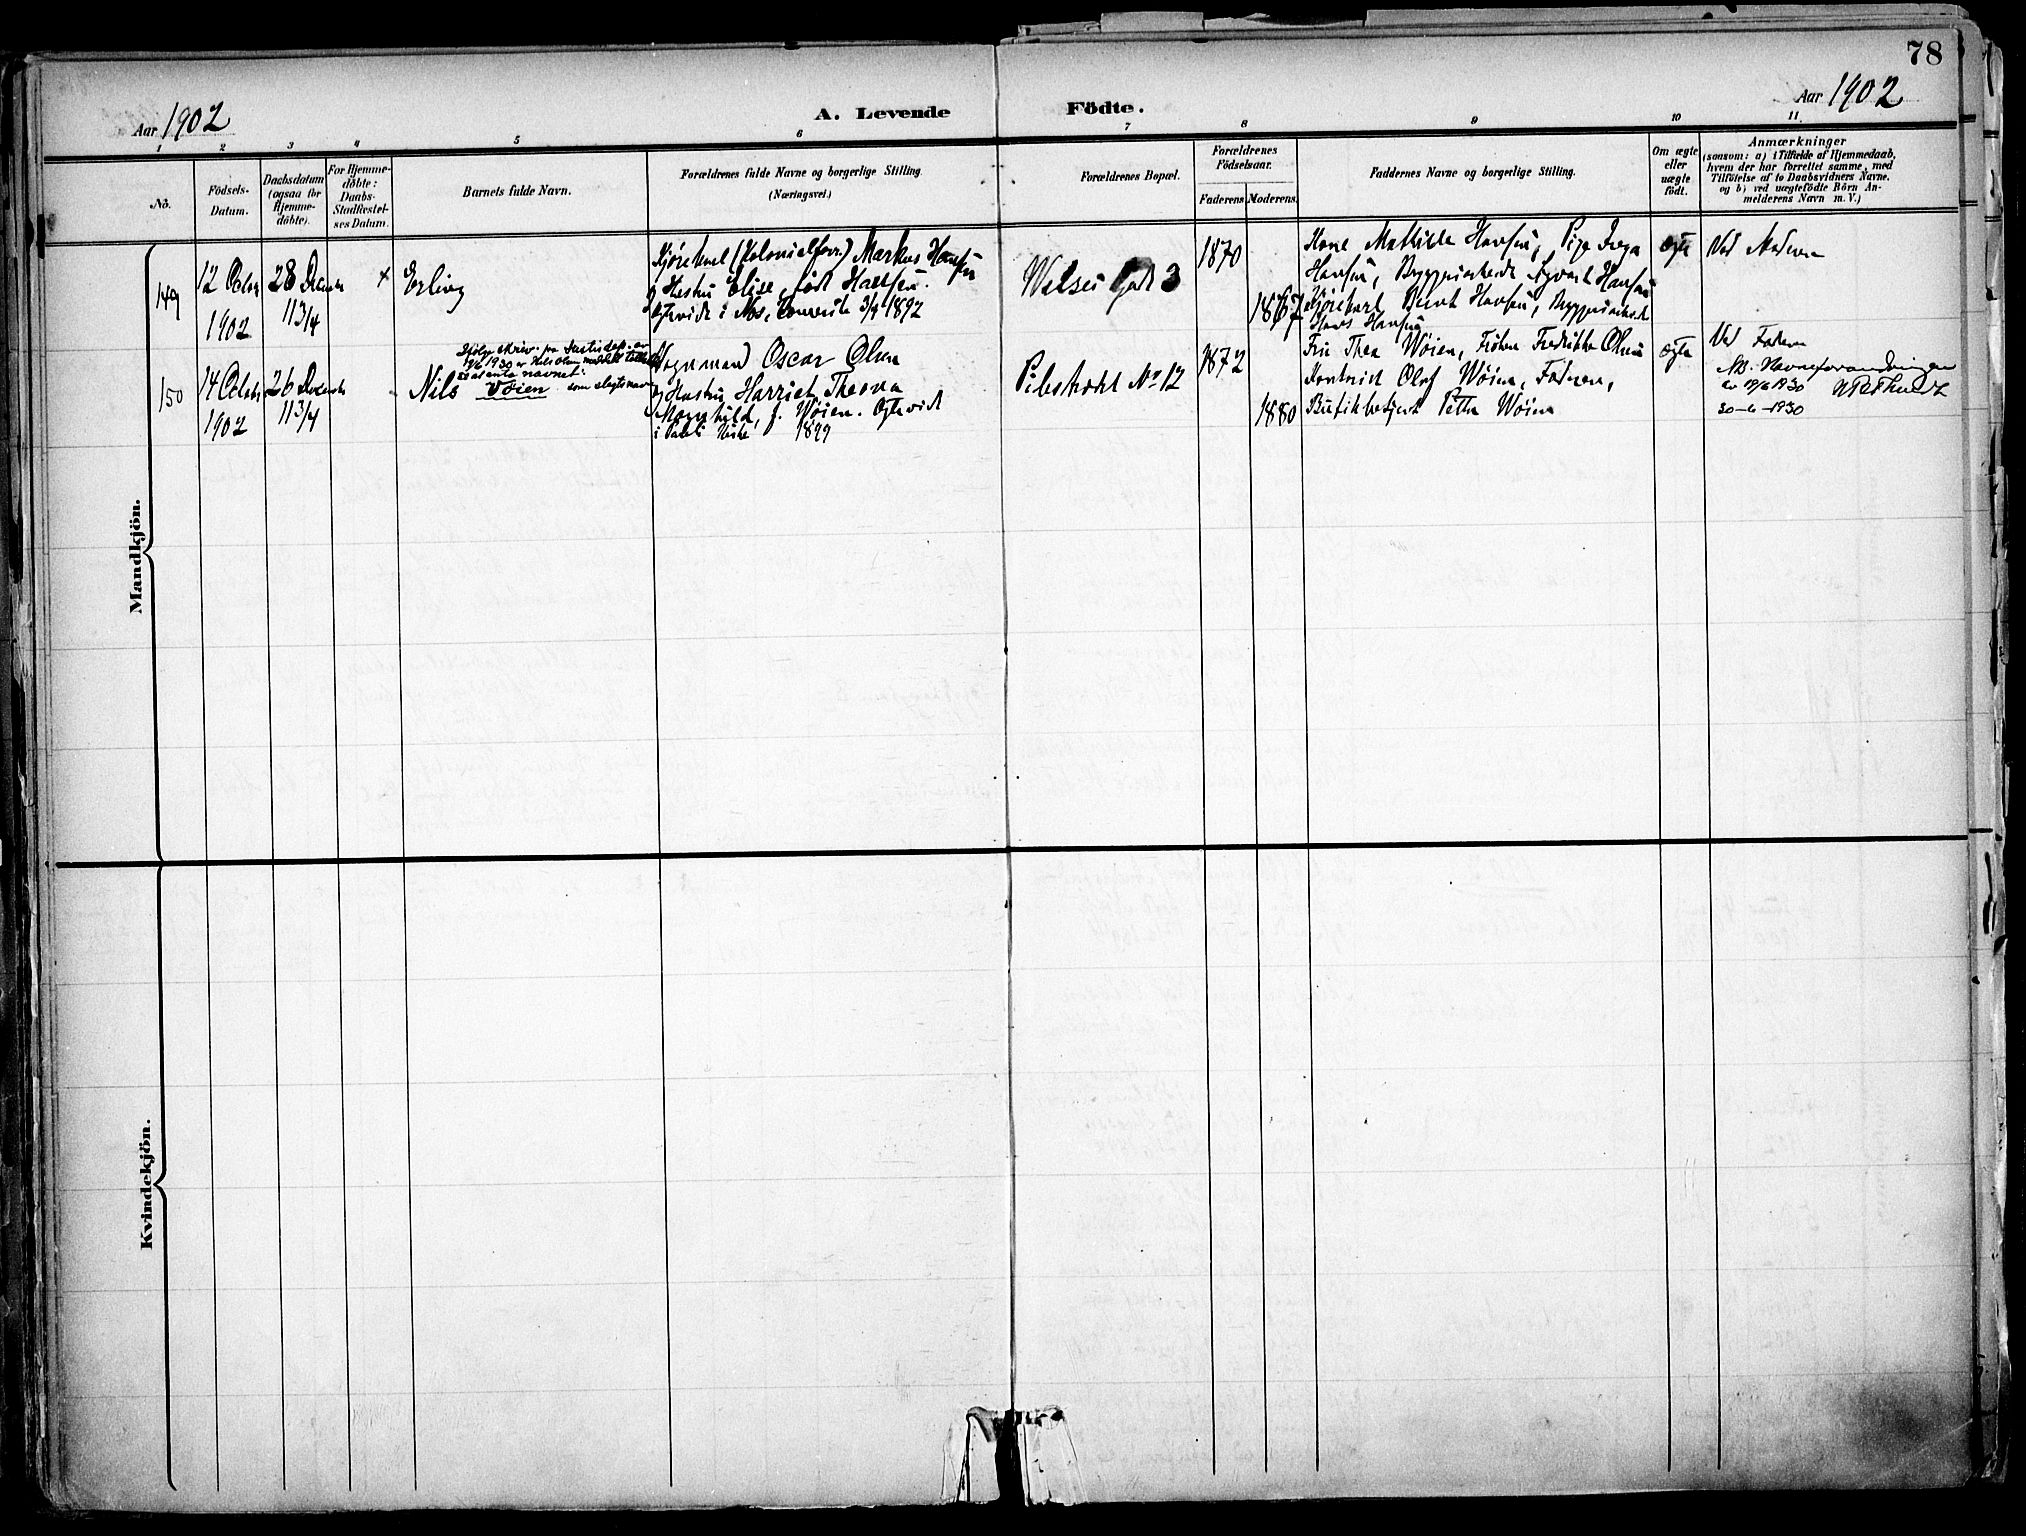 78
Aar 1902
A. Levende Födte.
Aar 1902
1 2 3 4 5 6 7 8 9 10 11.
No.
Födsels-
Datum.
Daabsdatum
(ogsaa for
Hjemme-
döbte).
For Hjemme-
döbte:
Daabs-
Stadfæstel-
ses Datum.
Barnets fulde Navn.
Forældrenes fulde Navne og borgerlige Stilling.
(Næringsvei.)
Forældrenes Bopæl.
Forældrenes
Födselsaar.
Faderens Moderens.
Faddernes Navne og borgerlige Stilling.
Om ægte
eller
uægte
födt.
Anmærkninger
(saasom: a) i Tilfælde af Hjemmedaab,
hvem der har forrettet samme, med
Tilföielse af to Daabsvidners Navne.
og b) ved uægtefödte Börn An-
melderens Navn m. V.)
Mandkjön.
149
12 Octbr
1902
28 Decembr
11 3/4
+
Erling
Kjörekarl (Kolonialforr.) Markus Hansen
og Hustru Elise, født
Ægtevidt i Mos, 3/9 1892
Gade 3
1870
1867
Kone Mathilde Hansen, Pige Inga
Hansen, Bryggeriarbeide Hansen
Kjörekarl Bernt Hansen, Bryggeriarbeide
Hans Hansen
ægte
Ved Moderen
150
14 Octobr
1902
26 Decembr
11 3/4
Ifølge skriv. fra Justisdep. av
19/6 1930 er Nils Olsen meddelt tillatelse
til at anta navnet:
Nils Vøien som slegtsnavn
Vognmand Oscar Olsen
og Hustru Harriet Theona
Magnhild, f. Wøien. Ægteviet
i Pauli Kirke 1899
Pilestrædet No 12
1872
1880
Fru Thea Wøien, Frøken Fredrikke Olsen
Kontorist Olaf Wøien, Faderen,
Butikbetjent Petter Wøien
ægte
Ved Faderen
NB. Navneforandringen
av 19/6 1930
30-6-1930
Kvindekjön.